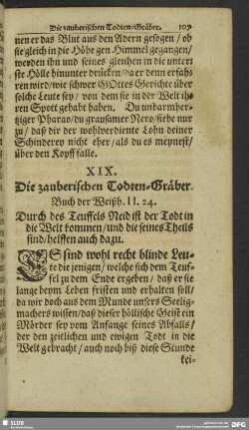 Die zauberischen Todten-Gräber. 109
nen er das Blut aus den Adern gesogen / ob
sie gleich in die Höhe gen Himmel gegangen/
werden ihn und seines gleichen in die unter
ste Hölle hinunter drücken/ da er denn erfah
ren wird/ wie schwer GOttes Gerichte über
solche Leute sey / von dem sie in der Welt ih
ren Spott gehabt haben. Du unbarmher-
tziger Pharao/ du grausamer Nero/ siehe nur
zu/ daß dir der wohlverdiente Lohn deiner
Schinderey nicht eher/ als du es meynest/
über den Kopff falle.
XIX.
Die zauberischen Todten-Gräber.
Buch der Weißh. II. 24.
Durch des Teuffels Neid ist der Todt in
die Welt kommen/ und die seines Theils
sind/ helffen auch dazu.
ES sind wohl recht blinde Leu-
te die jenigen/ welche sich dem Teuf-
fel zu dem Ende ergeben/ daß er sie
lange beym Leben fristen und erhalten soll/
da wir doch aus dem Munde unsers Seelig-
machers wissen/ daß dieser höllische Geist ein
Mörder sey vom Anfange seines Abfalls/
der den zeitlichen und ewigen Todt in die
Welt gebracht / auch noch biß diese Stunde
kei-
SLUB